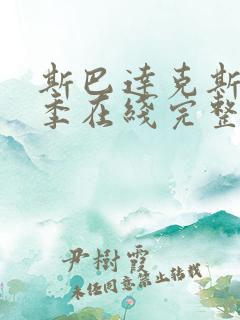 斯巴达克斯
季在线完整
尹树霞
未经同意禁止转载